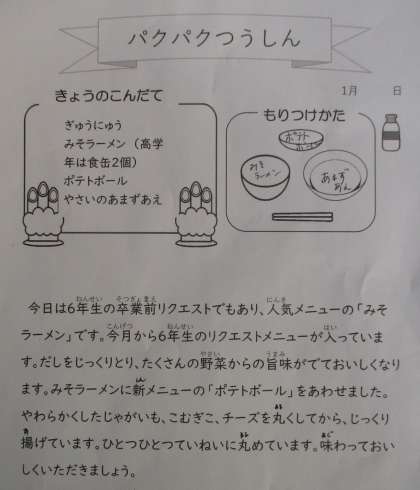 パクパクつうしん
1月　　日
きょうのこんだて
ぎゅうにゅう
みそラーメン（高学
年は食缶2個）
ポテトボール
やさいのあまずあえ
もりつけかた
ポテト
ボール
みそ
ラーメン
あまず
あえ
今日は6年生の卒業前リクエストでもあり、人気メニューの「みそ
ラーメン」です。今月から6年生のリクエストメニューが入っていま
す。だしをじっくりとり、たくさんの野菜からの旨味がでておいしくなり
ます。みそラーメンに新メニューの「ポテトボール」をあわせました。
やわらかくしたじゃがいも、こむぎこ、チーズを丸くしてから、じっくり
揚げています。ひとつひとつていねいに丸めています。味わっておい
しくいただきましょう。